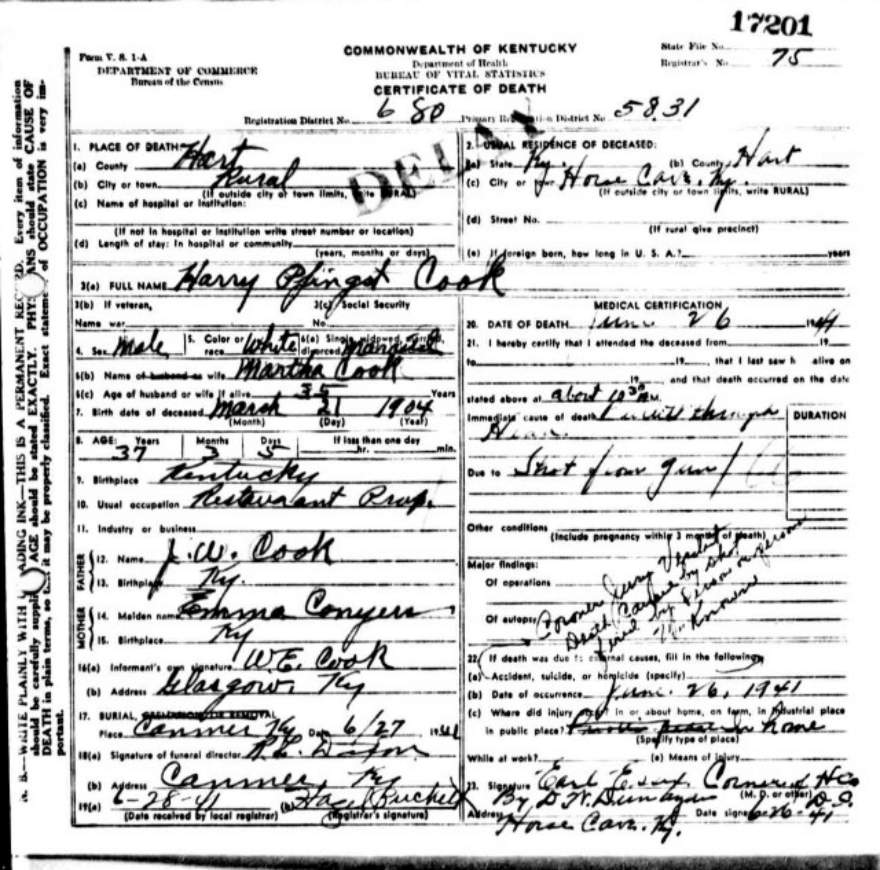 17201
Form V. S. 1-A
DEPARTMENT OF COMMERCE
Bureau of the Census
COMMONWEALTH OF KENTUCKY
Department of Health
BUREAU OF VITAL STATISTICS
CERTIFICATE OF DEATH
State File No.
Registrar's No. 75
Registration District No. 680 Primary Registration District No. 5831
DELAY
1. PLACE OF DEATH:
(a) County Hart
(b) City or town Rural
(If outside city or town limits, write RURAL)
(c) Name of hospital or institution:
(If not in hospital or institution write street number or location)
(d) Length of stay: In hospital or community
(years, months or days)
2. USUAL RESIDENCE OF DECEASED:
(a) State Ky. (b) County Hart
(c) City or town Horse Cave, Ky.
(If outside city or town limits, write RURAL)
(d) Street No.
(If rural give precinct)
(e) If foreign born, how long in U. S. A.? years
3(a) FULL NAME Harry Pfingst Cook
3(b) If veteran,
Name war
3(c) Social Security
No.
4. Sex Male 5. Color or race White 6(a) Single, widowed, married, divorced Married
6(b) Name of husband or wife Martha Cook
6(c) Age of husband or wife if alive 35 Years
7. Birth date of deceased March 21 1904
(Month) (Day) (Year)
8. AGE: Years Months Days If less than one day
37 3 5 hr. min.
9. Birthplace Kentucky
10. Usual occupation Restaurant Prop.
11. Industry or business
FATHER
12. Name J. W. Cook
13. Birthplace Ky.
MOTHER
14. Maiden name Emma Conyers
15. Birthplace Ky
16(a) Informant's own signature W.E. Cook
(b) Address Glasgow, Ky
17. BURIAL, CREMATION OR REMOVAL
Place Canmer Ky Date 6/27 19
18(a) Signature of funeral director
(b) Address Canmer, Ky
19(a) 6-28-41 (b)
(Date received by local registrar) (Registrar's signature)
MEDICAL CERTIFICATION
20. DATE OF DEATH June 26 1941
21. I hereby certify that I attended the deceased from 19
to 19 , that I last saw h alive on
19 , and that death occurred on the date
stated above at about 10
Immediate cause of death
DURATION
Due to Shot from gun
Other conditions
(Include pregnancy within 3 months of death)
Major findings:
Of operations
Of autopsy
Coroner Jury Verdict
Death Caused by shot
fired by Person or persons
Un Known
22. If death was due to external causes, fill in the following:
(a) Accident, suicide, or homicide (specify)
(b) Date of occurrence June 26, 1941
(c) Where did injury occur? In or about home, on farm, in industrial place
in public place? In home
(Specify type of place)
While at work? (e) Means of injury
23. Signature Earl Corner of H Co
(M. D. or other)
By D.W. D.S.
Address Horse Cave, Ky. Date signed 6-26-41
N. B.—WRITE PLAINLY WITH UNFADING INK—THIS IS A PERMANENT RECORD. Every item of information
should be carefully supplied. AGE should be stated EXACTLY. PHYSICIANS should state CAUSE OF
DEATH in plain terms, so that it may be properly classified. Exact statement of OCCUPATION is very im-
portant.